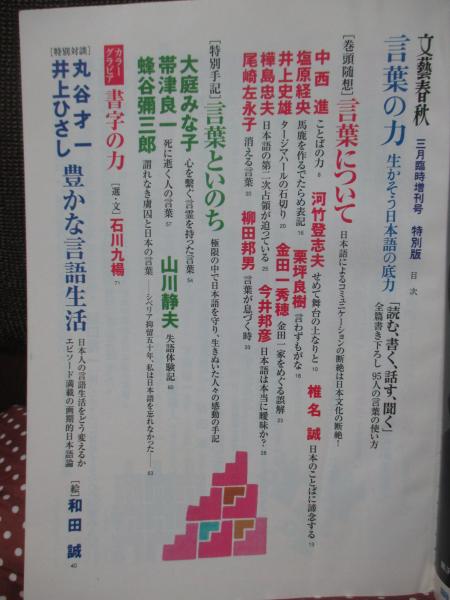 文藝春秋 三月臨時増刊号 特別版 目次
言葉の力 生かそう日本語の底力
「読む、書く、話す、聞く」
全篇書き下ろし 95人の言葉の使い方
[巻頭随想] 言葉について 日本語によるコミュニケーションの断絶は日本文化の断絶!
中西進 ことばの力 8 河竹登志夫 せめて舞台の土なりと 10 椎名誠 日本のことばに諦念する 13
塩原経央 馬鹿を作るでたらめ表記 16 栗坪良樹 言わずもがな 18
井上史雄 タージマハールの石切り 20 金田一秀穂 金田一家をめぐる誤解 23
樺島忠夫 日本語の第二次占領が迫っている 25 今井邦彦 日本語は本当に曖昧か? 28
尾崎左永子 消える言葉 30 柳田邦男 言葉が息づく時 33
[特別手記] 言葉といのち 極限の中で日本語を守り、生きぬいた人々の感動の手記
大庭みな子 心を繋ぐ言霊を持った言葉 54
帯津良一 死に逝く人の言葉 57 山川静夫 失語体験記 60
蜂谷彌三郎 謂れなき虜囚と日本の言葉 ──シベリア抑留五十年、私は日本語を忘れなかった── 63
カラーグラビア 書字の力 [選・文] 石川九楊 71
[特別対談] 丸谷才一 井上ひさし 豊かな言語生活 日本人の言語生活をどう変えるか
エピソード満載の画期的日本語論 [絵] 和田誠 40